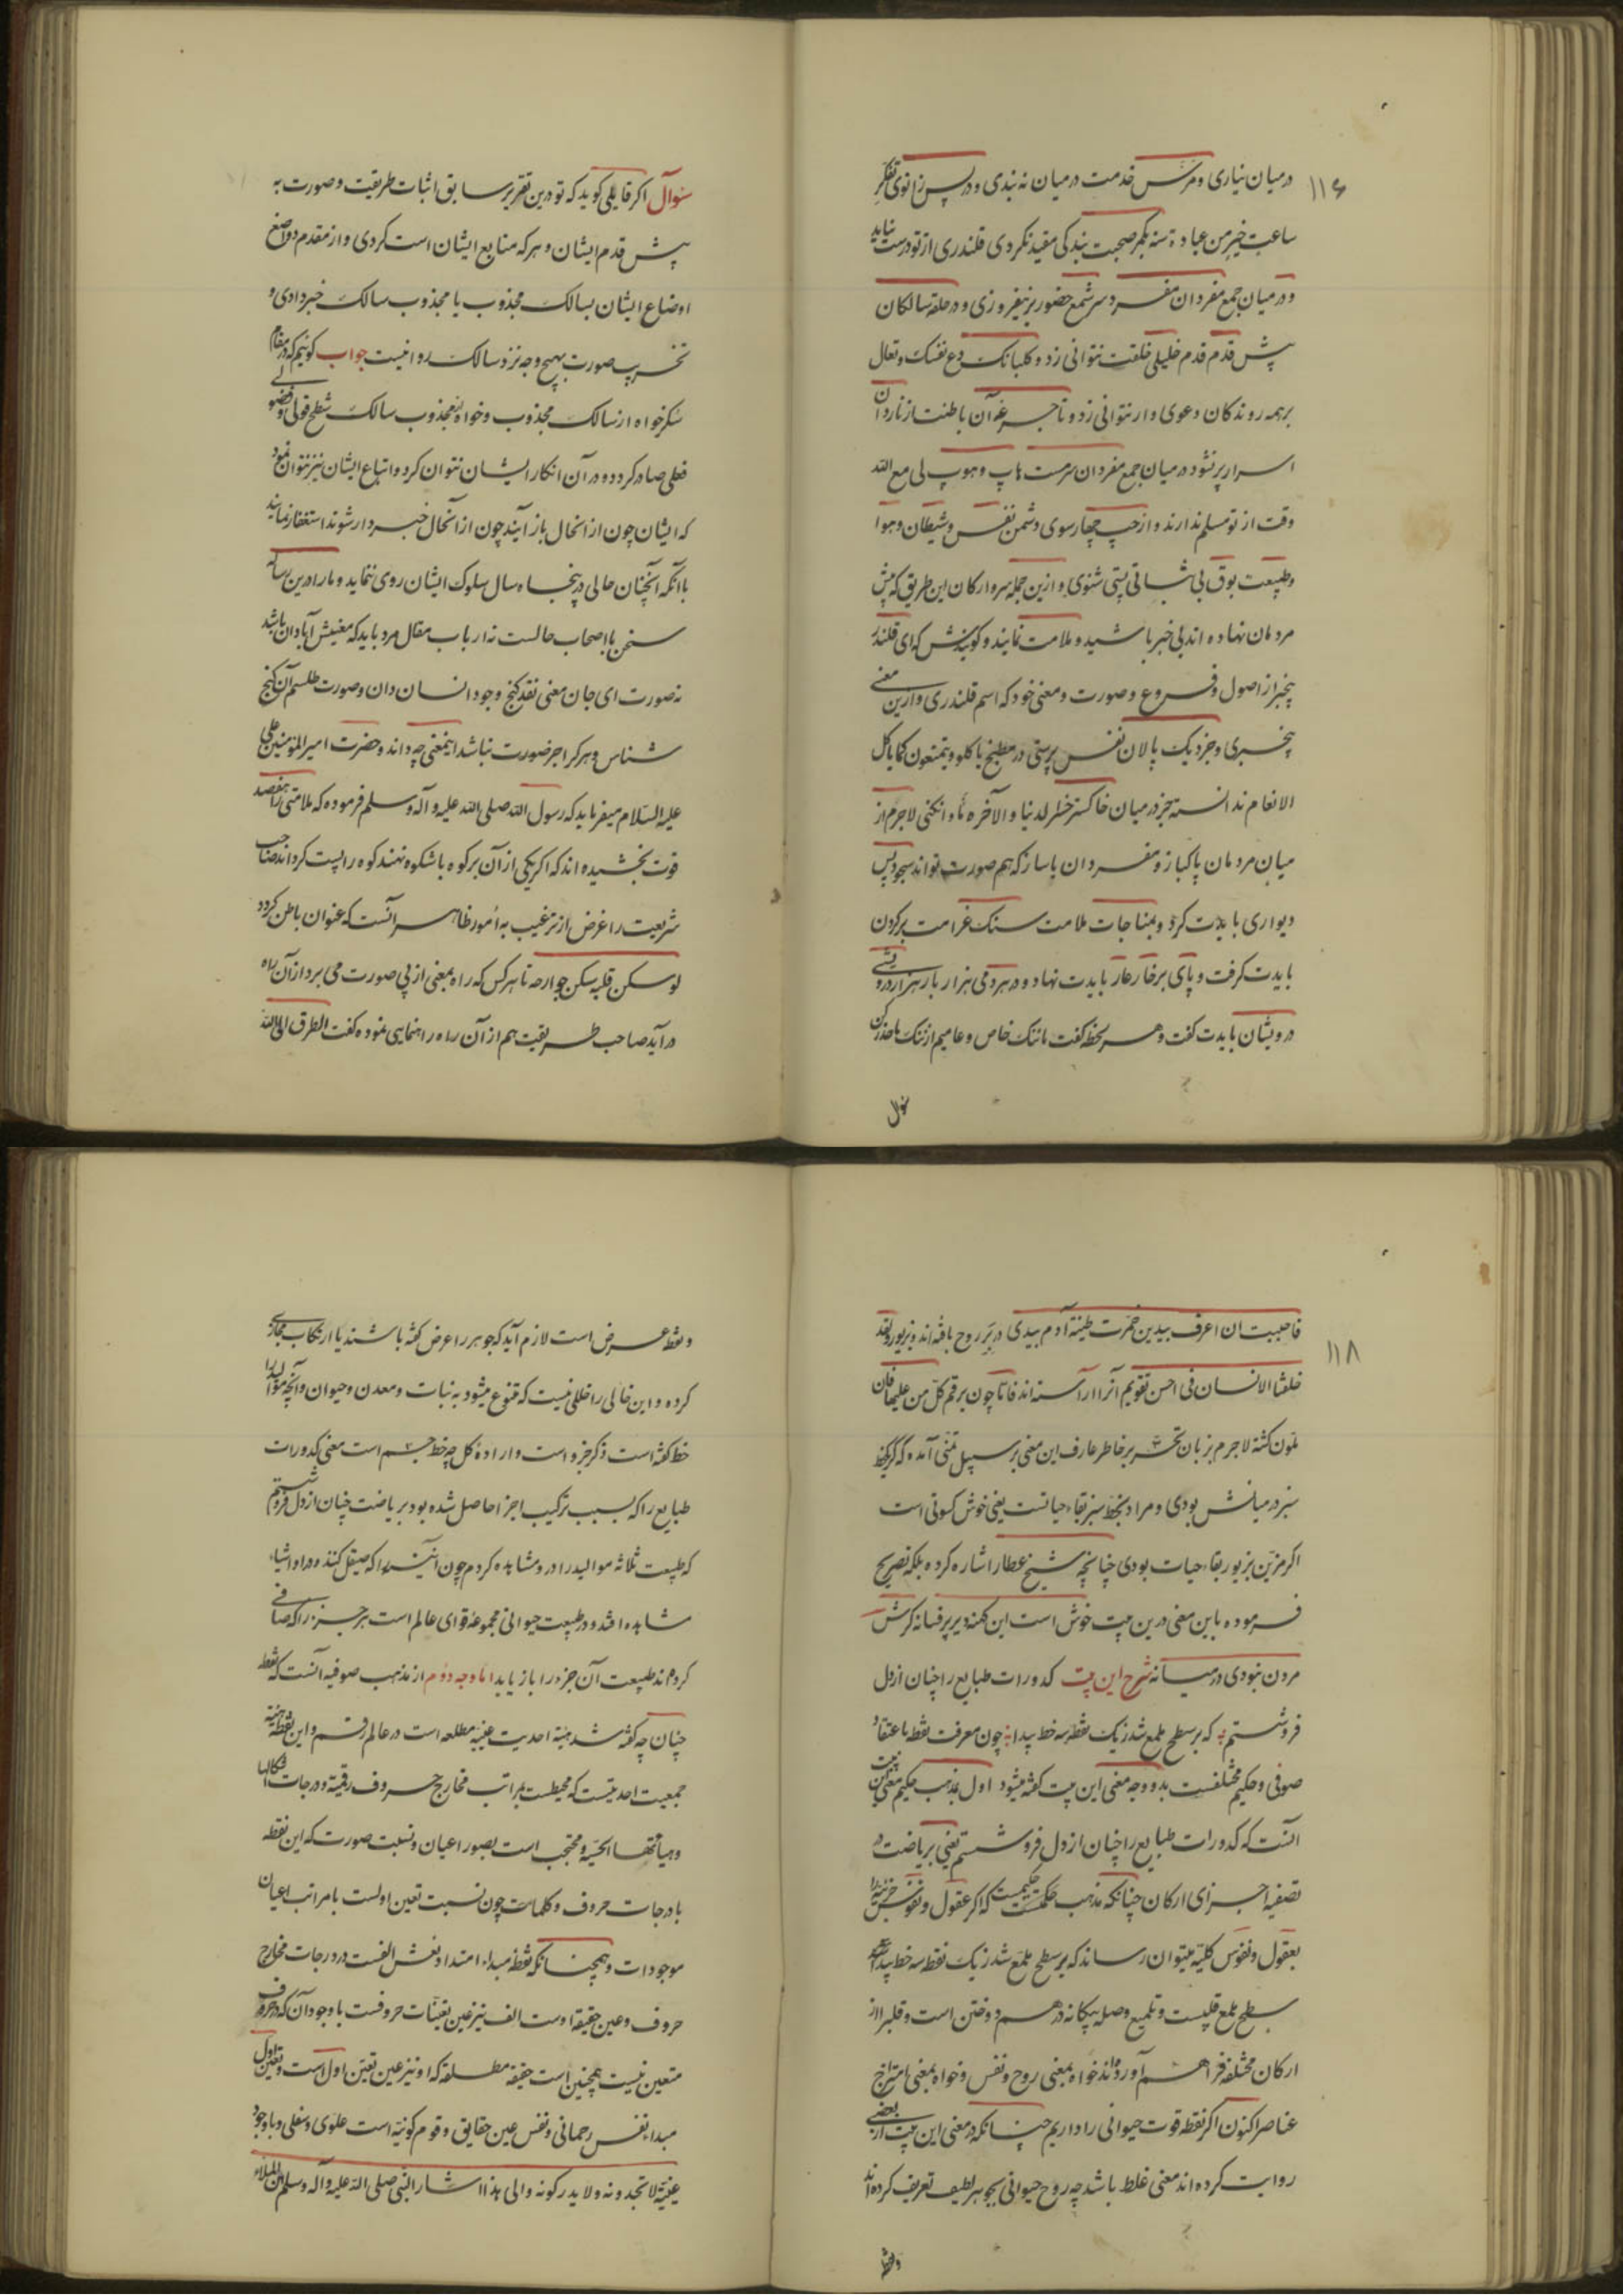 ۱۱۶
در میان نیاری و مرس خدمت در میان نه بندی و در پس زانوی تفکر
ساعت خیر من عبادة سنه بکمر صحبت بندکی مقید نکردی قلندری از تو درست نیاید
و در میان جمع مفردان مفرد سر شمع حضور بر نیفروزی و در حلقه سالکان
پیش قدم قدم خلیلی خلقت نتوانی زد و کلبانک دع نفسک و تعال
بر همه روندکان دعوی وار نتوانی زد و تا جرعه آن باطنت از ناردان
اسرار پر نشود در میان جمع مفردان سرمست هاپ و هوپ لی مع الله
وقت از تو مسلم ندارند و از چپ چهار سوی دشمن نفس و شیطان و هوا
و طبیعت بوق بی ثباتی پستی شنوی و ازین جمله سر و ارکان این طریق که پیش
مردمان نهاده اند بی خبر باشید و ملامت نمایند و کویندش که ای قلندر
بیخبر از اصول و فروع و صورت و معنی خود که اسم قلندری و ازین معنی
بیخبری و جز دیک پالان نفس پرستی در مطبخ یاکلو ویتمتعون کما یاکل
الانعام ندانسته جز در میان خاکستر خسر الدنیا و الآخره مأوا نکنی لاجرم از
میان مردمان پاکباز و مفردان باساز که هم صورت تواند سجود پس
دیواری بایدت کرد و بمناجات ملامت سنک غرامت بر کردن
بایدت کرفت و پای بر خار عار بایدت نهاد و در هر دمی هزار بار هزار درویشی
درویشان بایدت کفت و هر لحظه کفت ما ننک خاص و عامیم از ننک ما حذر کن
سؤال
سؤال اکر قایلی کوید که تو درین تقریر سابق اثبات طریقت و صورت به
پیش قدم ایشان و هر که متابع ایشان است کردی و از مقدم و واضع
اوضاع ایشان بسالک مجذوب یا مجذوب سالک خبر دادی و
تخریب صورت بهیچ وجه نزد سالک روا نیست جواب کوئیم که در مقام
سکر خواه از سالک مجذوب و خواه مجذوب سالک شطح قولی و فضولی
فعلی صادر کردد و در آن انکار ایشان نتوان کرد و اتباع ایشان نیز نتوان نمود
که ایشان چون از انحال باز آیند چون از آنحال خبردار شوند استغفار نمایند
با آنکه آنچنان حالی در پنجاه سال سلوک ایشان روی ننماید و ما را درین رساله
سخن با اصحاب حالست نه ارباب مقال مرد باید که معنیش آبادان باشد
نه صورت ای جان معنی نقد کنج وجود انسان دان و صورت طلسم آن کنج
شناس و هر کرا جز صورت نباشد اینمعنی چه داند و حضرت امیر المؤمنین علی
علیه السلام میفرماید که رسول الله صلی الله علیه و آله وسلم فرموده که ملامتی را هفصد
قوت بخشیده اند که اکر یکی از آن بر کوه باشکوه نهند کوه را پست کرداند صاحب
شریعت را غرض از ترغیب به امور ظاهر آنست که عنوان باطن کردد
لو سکن قلبه سکن جوارحه تا هر کس که راه بمعنی از پی صورت می برد از آن راه
در آید صاحب طریقت هم از آن راه راهنمایی نموده کفت الطرق الی الله
۱۱۸
فاحببت ان اعرف بیدین خمرت طینة آدم بیدی در بر روح بافته اند و بزیور لقد
خلقنا الانسان فی احسن تقویم آنرا آراسته اند فاتا چون برقم کل من علیها فان
ملون کشته لاجرم بزبان تحسر بر خاطر عارف این معنی بر سبیل تمنی آمده که کر یکخط
سبز در میانش بودی و مراد بخط سبز بقاء حیاتست یعنی خوش کسوتی است
اکر مزین بزیور بقاء حیات بودی چنانچه شیخ عطار اشاره کرده بلکه تصریح
فرموده باین معنی درین بیت خوش است این کهنه دیر پر فسانه کرش
مردن نبودی در میانه شرح این بیت کدورات طبایع را چنان از دل
فرو شستم که بر سطح ملمع شد ز یک نقطه سه خط پیدا چون معرفت نقطه باعتقاد
صوفی و حکیم مختلفست بدو وجه معنی این بیت کفته میشود اول بمذهب حکیم معنی این بیت
آنست که کدورات طبایع را چنان از دل فرو شستم یعنی بریاضت و
تصفیه اجزای ارکان چنانکه مذهب حکمت حکیمست که اکر عقول و نفوس جزئیه را
بعقول و نفوس کلیه میتوان رساند که بر سطح ملمع شد ز یک نقطه سه خط پیدا
سطح ملمع قلبست و تلمیع وصله بیکانه در هم دوختن است و قلب را از
ارکان مختلفه فراهم آورده اند خواه بمعنی روح و نفس و خواه بمعنی امتزاج
عناصر اکنون اکر نقطه قوت حیوانی را داریم چنانکه در معنی این بیت از بعضی
روایت کرده اند معنی غلط باشد چه روح حیوانی بجوهر لطیف تعریف کرده اند
و نقطه
و نقطه عرض است لازم آید که جوهر را عرض کفته باشند یا ارتکاب مجازی
کرده و این خالی را خللی نیست که متنوع میشود به نبات و معدن و حیوان و آنچه موالید را
خط کفته است ذکر جزو است و اراده کل چه خط جسم است معنی کدورات
طبایع را که بسبب ترکیب اجزا حاصل شده بود بریاضت چنان از دل فرو شستم
که طبیعت ثلاثه موالید را در و مشاهده کردم چون آئینه را که صیقل کنند و در او اشیاء
مشاهده افتد و در طبیعت حیوانی مجموعه قوای عالم است هر جزء را که صافی
کردم اند طبیعت آن جزو را باز یابد اما وجه دوم از مذهب صوفیه آنست که نقطه
چنان چه کفته شد هیئة احدیت عینیه مطلعه است در عالم رقم و این نقطه هیئة
جمعیت احدیتست که محیطست بمراتب مخارج حروف رقمیة و درجات اشکالها
و هیآتها الحسیة و محتجب است بصور اعیان و نسبت صورت که این نقطه
با درجات حروف و کلمات چون نسبت تعین اولست با مراتب اعیان
موجودات و همچنانکه نقطه مبداء امتداد نفش الفست در درجات مخارج
حروف و عین حقیقة اوست الف نیز عین تعینات حروفست با وجود آن که در حروف
متعین نیست همچنین است حقیقة مطلقه که او نیز عین تعین اول است و تعین اول
مبداء نفس رحمانی و نفس عین حقایق و قوم کونیة است علوی و سفلی و با وجود
عینیة لا تجدونه و لا یدرکونه و الی هذا اشار النبی صلی الله علیه و آله وسلم ان الملاء